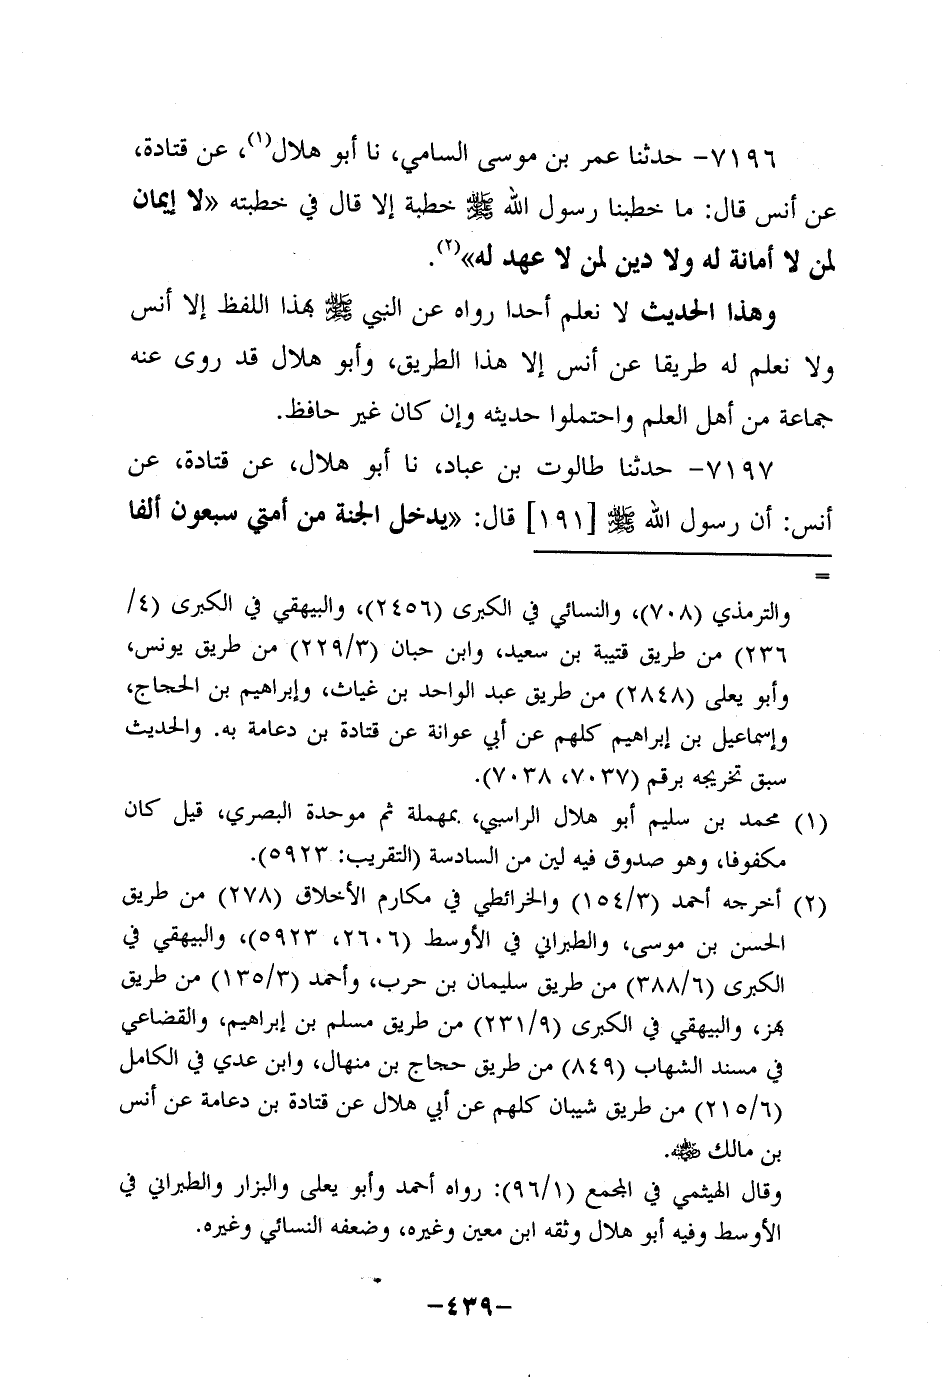 ٧١٩٦- حدثنا عمر بن موسى السامي، نا أبو هلال(١)، عن قتادة،
عن أنس قال: ما خطبنا رسول الله ﷺ خطبة إلا قال في خطبته «لا إيمان
لمن لا أمانة له ولا دين لمن لا عهد له»(٢).
وهذا الحديث لا نعلم أحدا رواه عن النبي ﷺ بهذا اللفظ إلا أنس
ولا نعلم له طريقا عن أنس إلا هذا الطريق، وأبو هلال قد روى عنه
جماعة من أهل العلم واحتملوا حديثه وإن كان غير حافظ.
٧١٩٧- حدثنا طالوت بن عباد، نا أبو هلال، عن قتادة، عن
أنس: أن رسول الله ﷺ [١٩١] قال: «يدخل الجنة من أمتي سبعون ألفا
=
والترمذي (٧٠٨)، والنسائي في الكبرى (٢٤٥٦)، والبيهقي في الكبرى (٤/
٢٣٦) من طريق قتيبة بن سعيد، وابن حبان (٢٢٩/٣) من طريق يونس،
وأبو يعلى (٢٨٤٨) من طريق عبد الواحد بن غياث، وإبراهيم بن الحجاج،
وإسماعيل بن إبراهيم كلهم عن أبي عوانة عن قتادة بن دعامة به. والحديث
سبق تخريجه برقم (٧٠٣٧، ٧٠٣٨).
(١) محمد بن سليم أبو هلال الراسبي، بمهملة ثم موحدة البصري، قيل كان
مكفوفا، وهو صدوق فيه لين من السادسة (التقريب: ٥٩٢٣).
(٢) أخرجه أحمد (١٥٤/٣) والخرائطي في مكارم الأخلاق (٢٧٨) من طريق
الحسن بن موسى، والطبراني في الأوسط (٢٦٠٦، ٥٩٢٣)، والبيهقي في
الكبرى (٣٨٨/٦) من طريق سليمان بن حرب، وأحمد (١٣٥/٣) من طريق
بهز، والبيهقي في الكبرى (٢٣١/٩) من طريق مسلم بن إبراهيم، والقضاعي
في مسند الشهاب (٨٤٩) من طريق حجاج بن منهال، وابن عدي في الكامل
(٢١٥/٦) من طريق شيبان كلهم عن أبي هلال عن قتادة بن دعامة عن أنس
بن مالك ﵁.
وقال الهيثمي في المجمع (٩٦/١): رواه أحمد وأبو يعلى والبزار والطبراني في
الأوسط وفيه أبو هلال وثقه ابن معين وغيره، وضعفه النسائي وغيره.
-٤٣٩-